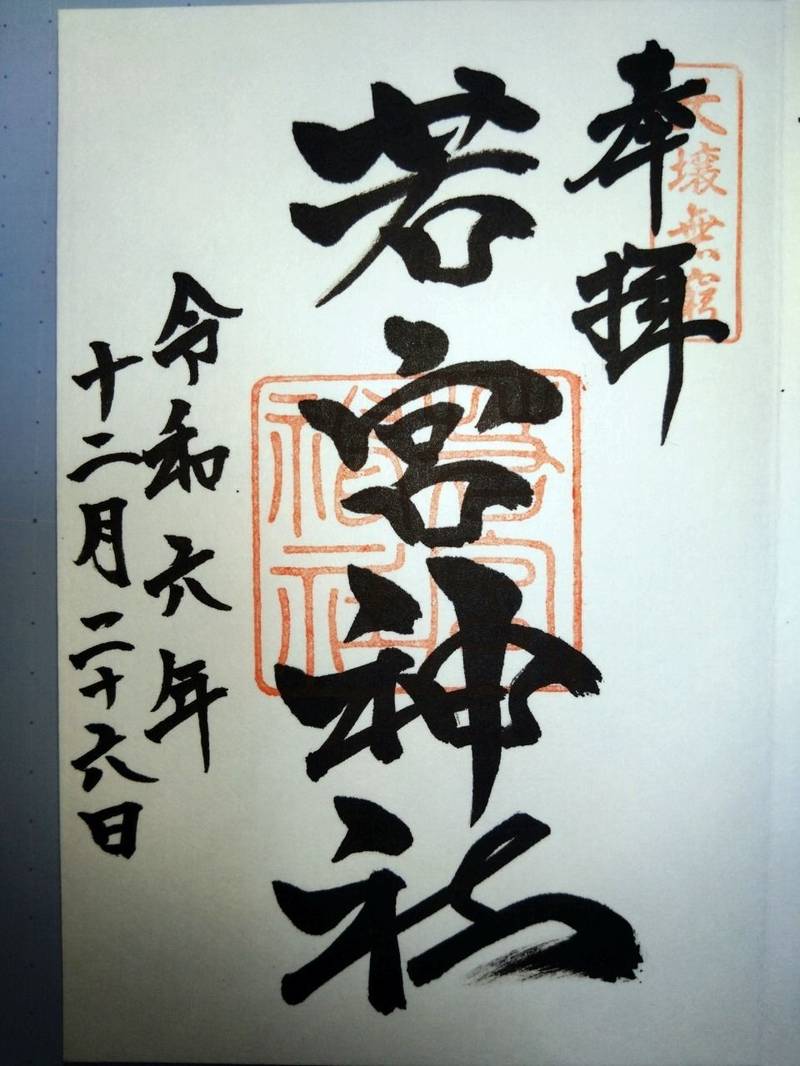 奉拝
天壌無窮
若宮神社
令和六年
十二月二十六日